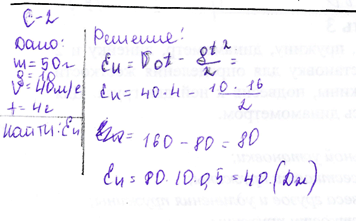 С-2
Дано:
m = 50г
g = 10
V = 40м/с
t = 4с
Найти: Eн
Решение:
Eн = V₀t - gt²/2 =
Eн = 40·4 - 10·16/2
= 160 - 80 = 80
Eн = 80·10·0,5 = 40 (Дж)